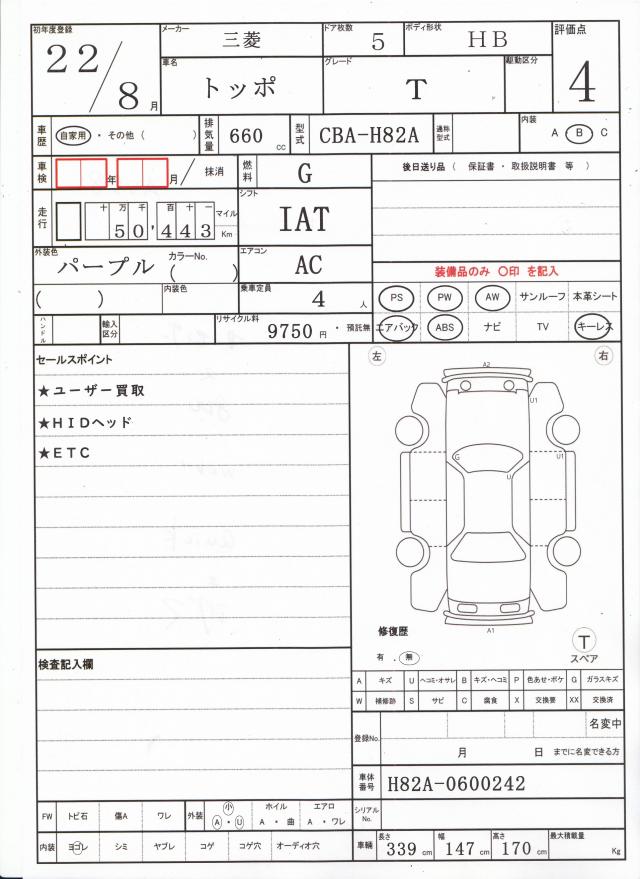 初年度登録 メーカー 三菱 ドア枚数 5 ボディ形状 HB 評価点
22/8月 車名 トッポ グレード T 駆動区分 4
車歴 自家用 ・ その他 ( ) 排気量 660 cc 型式 CBA-H82A 通称型式 内装 A B C
車検 年 月/ 抹消 燃料 G 後日送り品 ( 保証書 ・ 取扱説明書 等 )
走行 十 万 千 百 十 一 50,443 マイル Km シフト IAT
外装色 パープル カラーNo. ( ) エアコン AC 装備品のみ 〇印 を記入
( ) 内装色 乗車定員 4 人 PS PW AW サンルーフ 本革シート
ハンドル 輸入区分 リサイクル料 9750 円 ・ 預託無 エアバック ABS ナビ TV キーレス
セールスポイント 左 右
★ユーザー買取
★HIDヘッド
★ETC
A2
U1
G U1
U
A1
修復歴
有 . 無 T
スペア
検査記入欄
A キズ U ヘコミ・オサレ B キズ・ヘコミ P 色あせ・ボケ G ガラスキズ
W 補修跡 S サビ C 腐食 X 交換要 XX 交換済
登録No. 名変中
月 日 までに名変できる方
車体番号 H82A-0600242
FW トビ石 傷A ワレ 外装 小 A ・ U ホイル A ・ 曲 エアロ A ・ ワレ シリアルNo.
内装 ヨゴレ シミ ヤブレ コゲ コゲ穴 オーディオ穴 車輛 長さ 339 cm 幅 147 cm 高さ 170 cm 最大積載量 Kg